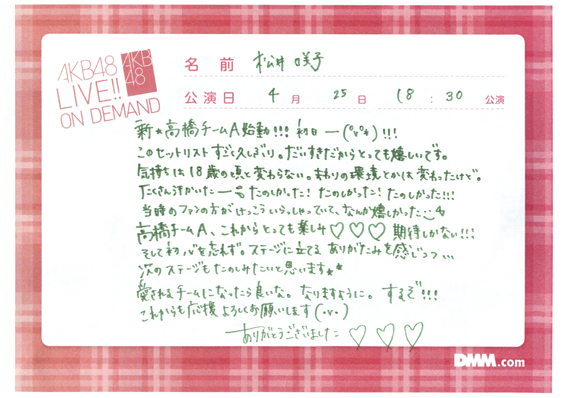 AKB48
LIVE!!
ON DEMAND
AKB
48
名前 松井咲子
公演日 4月 25日 18:30 公演
新★高橋チームA始動!!! 初日ー(°v°*)!!!
このセットリストすごく久しぶり。だいすきだからとっても嬉しいです。
気持ちは18歳の時と変わらない。まわりの環境とかは変わったけど。
たくさん汗かいたー たのしかった! たのしかった! たのしかった!!!
当時のファンの方がけっこういらっしゃっていて、なんか嬉しかった
高橋チームA、これからとっても楽しみ♡♡♡ 期待しかない!!!
そして初心を忘れず。ステージに立てるありがたみを感じつつ...
次のステージもたのしみたいと思います★★
愛されるチームになったら良いな。なりますように。するぞ!!!
これからも応援よろしくお願いします(・v・)
ありがとうございました♡♡♡
DMM.com